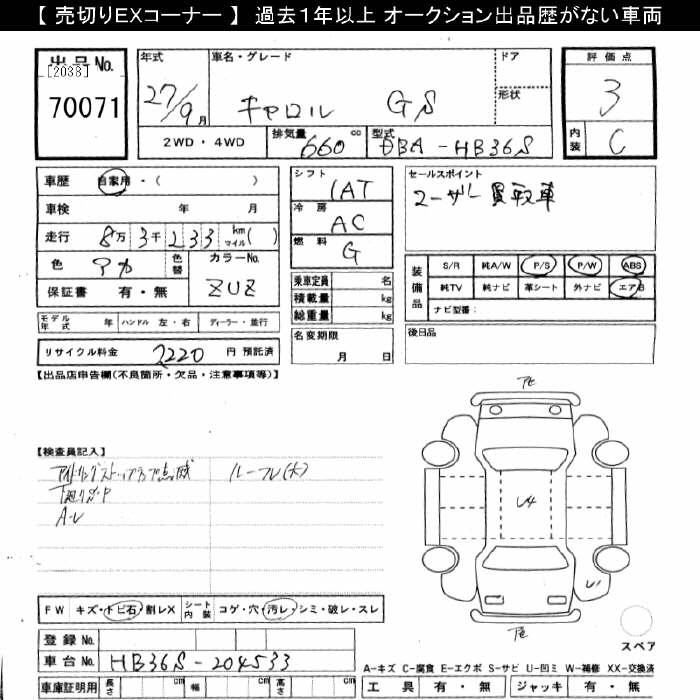 【 売切りEXコーナー 】 過去1年以上 オークション出品歴がない車両
出品No.
[2038]
70071
年式 27/9月
車名・グレード キャロル GS
ドア
形状
2WD・4WD
排気量 660 cc
型式 DBA-HB36S
評価点 3
内装 C
車歴 自家用・( )
車検 年 月
走行 8万3千233 km マイル( )
色 アカ 色替 カラーNo. ZUZ
保証書 有・無
シフト 1AT
冷房 AC
燃料 G
乗車定員 名
積載量 kg
総重量 kg
名変期限 月 日
セールスポイント
ユーザー買取車
装備品
S/R 純A/W P/S P/W ABS
純TV 純ナビ 革シート 外ナビ エアB
ナビ型番:
後日品
モデル年式 年 ハンドル 左・右 ディーラー・並行
リサイクル料金 7220 円 預託済
【出品店申告欄(不良箇所・欠品・注意事項等)】
【検査員記入】
アイドリングストップランプ点滅 ルーフU(大)
下廻りサビ
A・U
FW キズ・トビ石・割レX シート内装 コゲ・穴・汚レ・シミ・破レ・スレ
登録No.
車台No. HB36S-204533
車庫証明用 長さ cm 幅 cm 高さ cm
U4
U1
スペア
A-キズ C-腐食 E-エクボ S-サビ U-凹ミ W-補修 XX-交換済
工具 有・無 ジャッキ 有・無